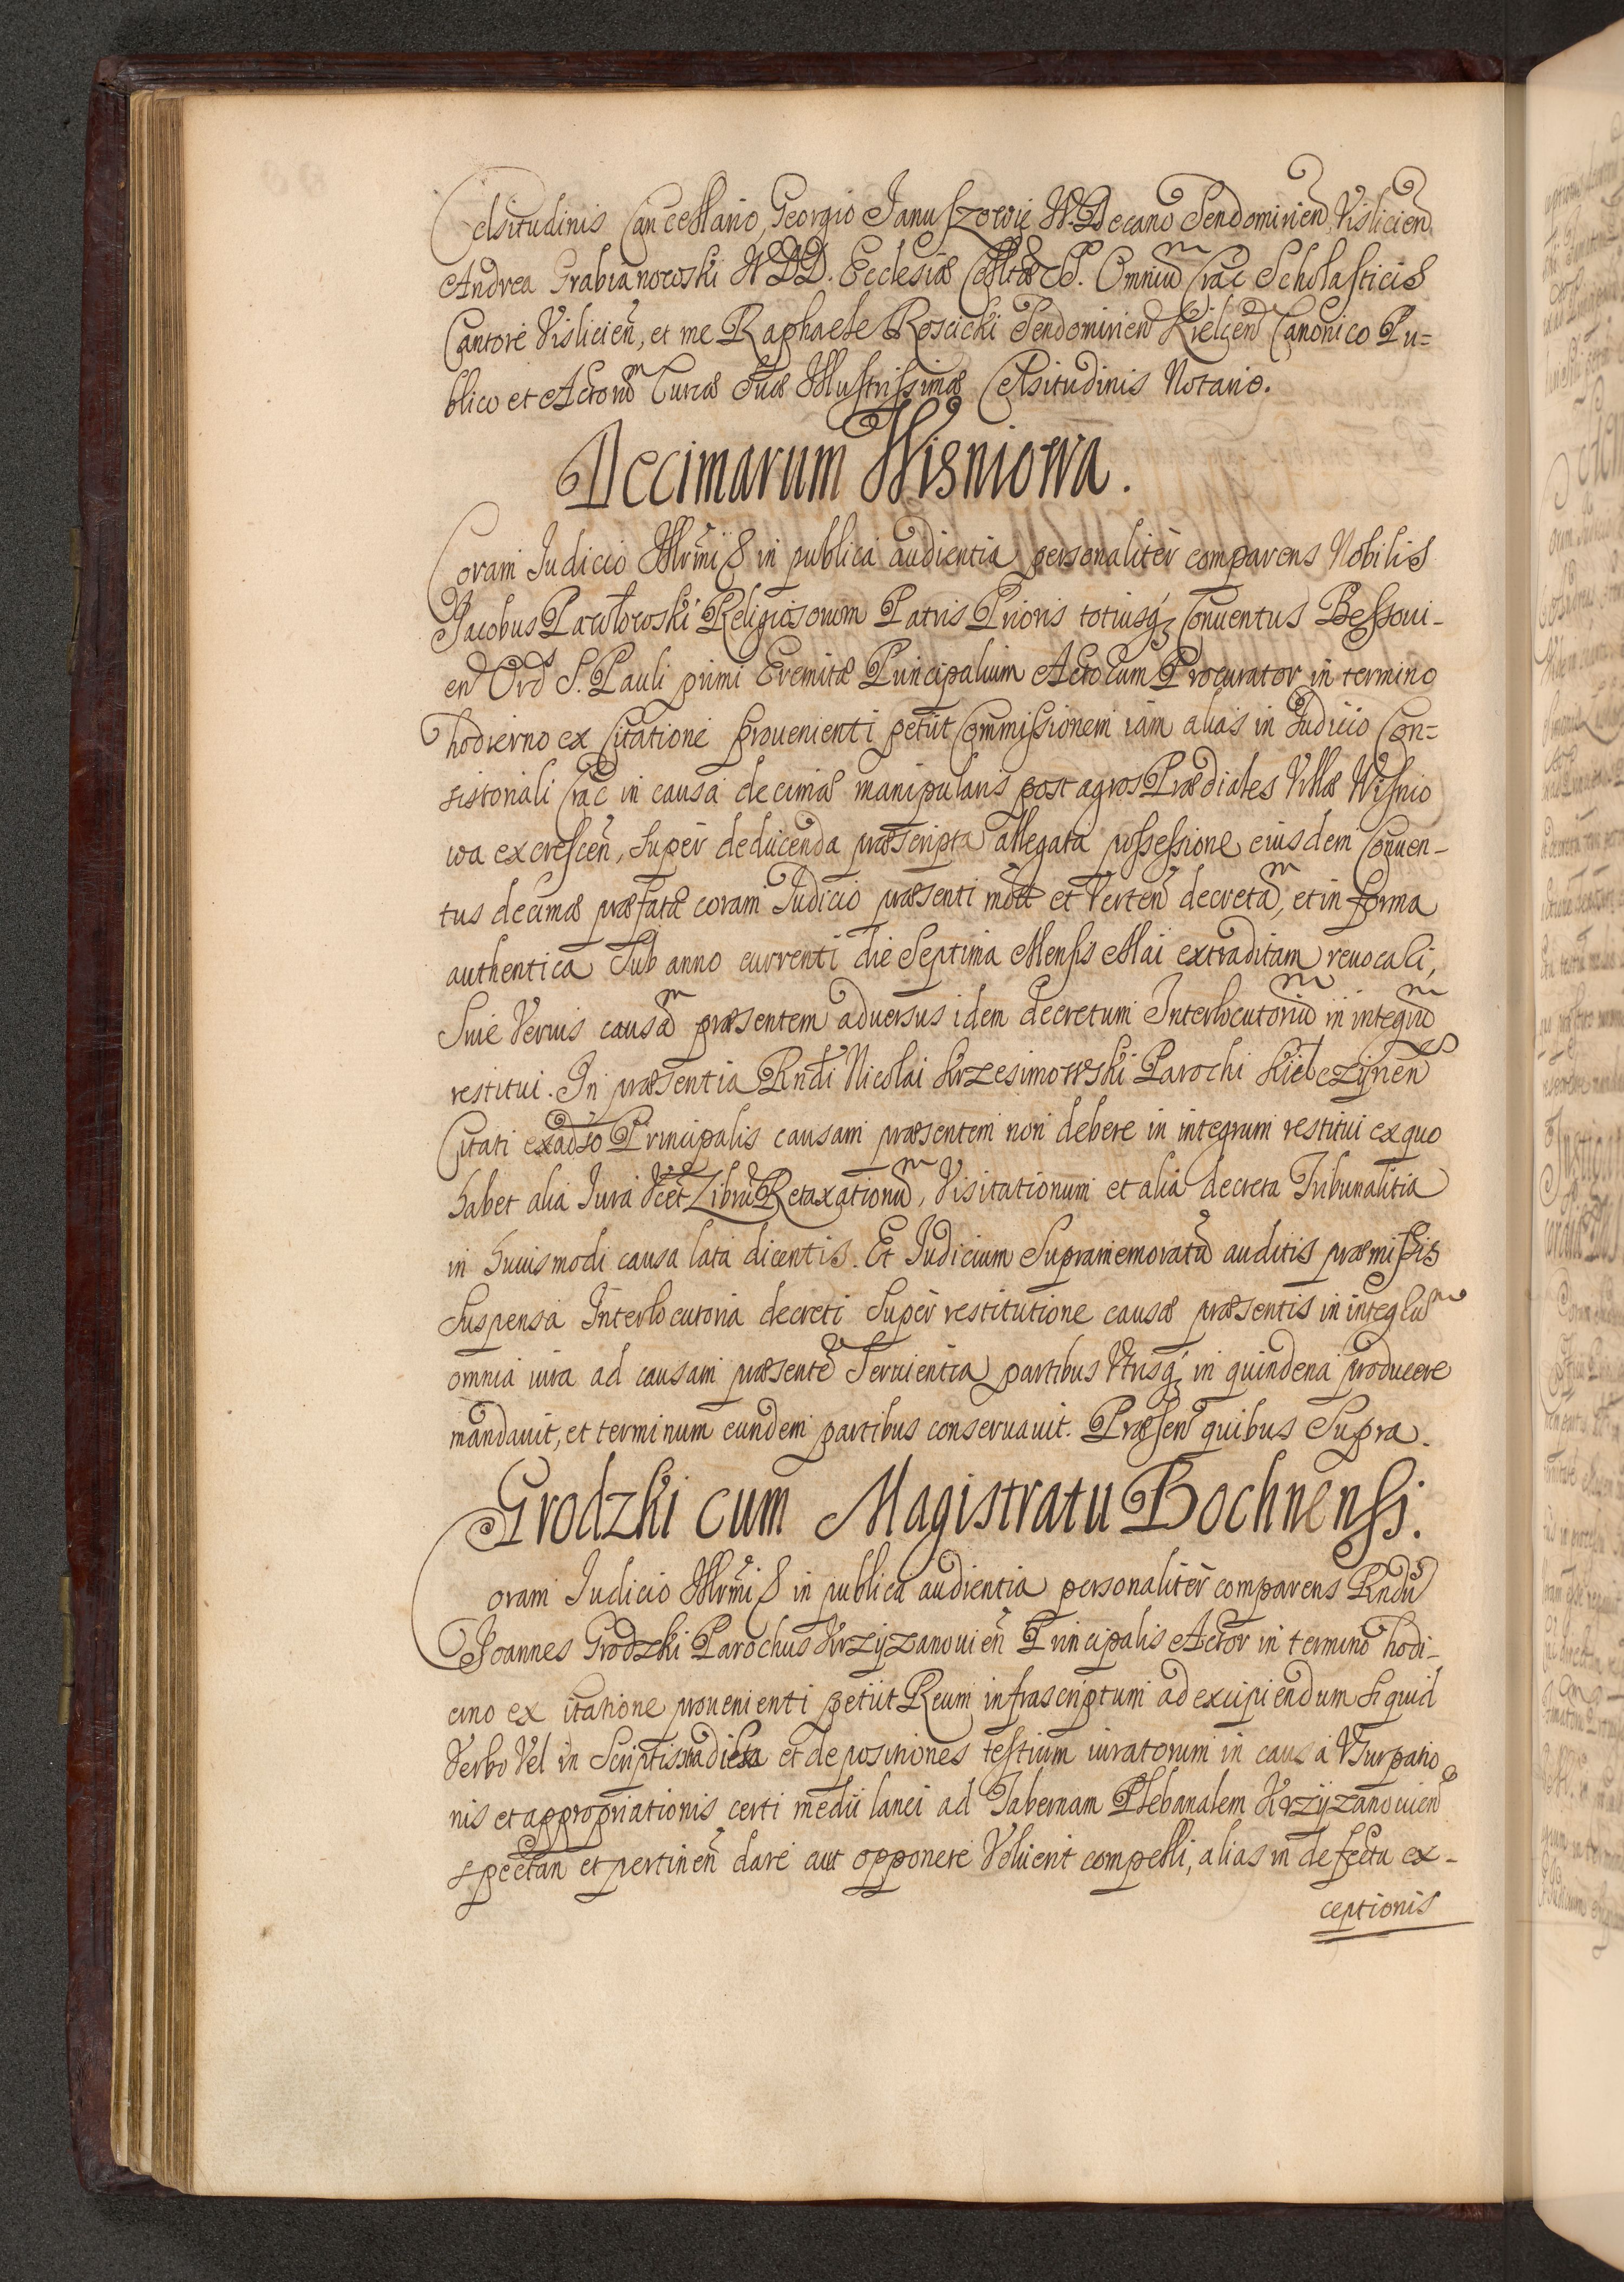 Celsitudinis Cancellario, Georgio Januszowic U.D. Decano Sendomirien Vislicien
Andrea Grabianowski U.D.D. Ecclesiæ Colltæ S. Omniū Crac Scholasticis
Cantore Vislicien, et me Raphaele Roscicki Sendomirien Kielcen Canonico Pu=
blico et Actorū Curiæ Suæ Illustrissimæ Celsitudinis Notario.
Decimarum Wisniowa.
Coram Judicio Illrmi S in publica audientia personaliter comparens Nobilis
Jacobus Pawłowski Religiosorum Patris Prioris totiusq Conuentus Bessoui-
en Ord S. Pauli primi Eremitæ Principalium Actorum Procurator in termino
hodierno ex Citatione prouenienti petiit Commissionem iam alias in Judicio Con=
sistoriali Crac in causa decimæ manipularis post agros Prædiales Villæ Wisnio
wa excrescen, super deducenda præscripta allegata possessione eiusdem Conuen-
tus decimæ præfatæ coram Judicio præsenti mot et Verten decretā, et in forma
authentica Sub anno currenti die Septima Mensis Mai extraditam reuocari,
Siue Verius causā præsentem aduersus idem decretum Interlocutoriū in integrū
restitui. In præsentia Rndi Nicolai Krzesimowski Parochi Kiełczynen
Citati ex adso Principalis causam præsentem non debere in integrum restitui ex quo
habet alia Jura Vcet Librū Retaxationū, Visitationum et alia decreta Tribunalitia
in huiusmodi causa lata dicentis. Et Judicium Supramemoratū auditis præmissis
Suspensa Interlocutoria decreti Super restitutione causæ præsentis in integrū
omnia iura ad causam præsentē Seruientia partibus Vtrisq in quindena producere
mandauit, et terminum eundem partibus conseruauit. Præsen quibus Supra.
Grodzki cum Magistratu Bochnensi.
Coram Judicio Illrmi S in publica audientia personaliter comparens Rndū
Joannes Grodzki Parochus Krzyzanouien Principalis Actor in termino hodi-
erno ex itatione prouenienti petiit Reum infrascriptum ad excipiendum si quid
Verbo Vel in Scriptis et depositiones testium iuratorum in causa Vsurpatio
nis et appropriationis certi medii lanei ad Tabernam Plebanalem Krzyzanouien
spectan et pertinen dare aut opponere Voluerit compelli, alias in defectu ex-
ceptionis